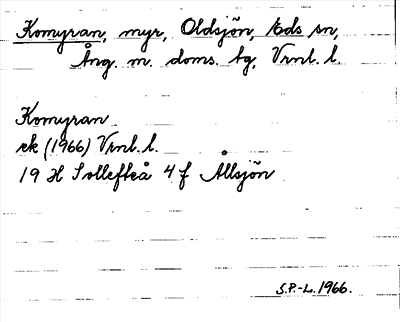 Komyran, myr, Oldsjön, Eds sn,
Ång. m. doms. tg, Vrnl. l.
Komyran
ek (1966) Vrnl. l.
19 H Sollefteå 4 f Ållsjön
S.P.-L. 1966.